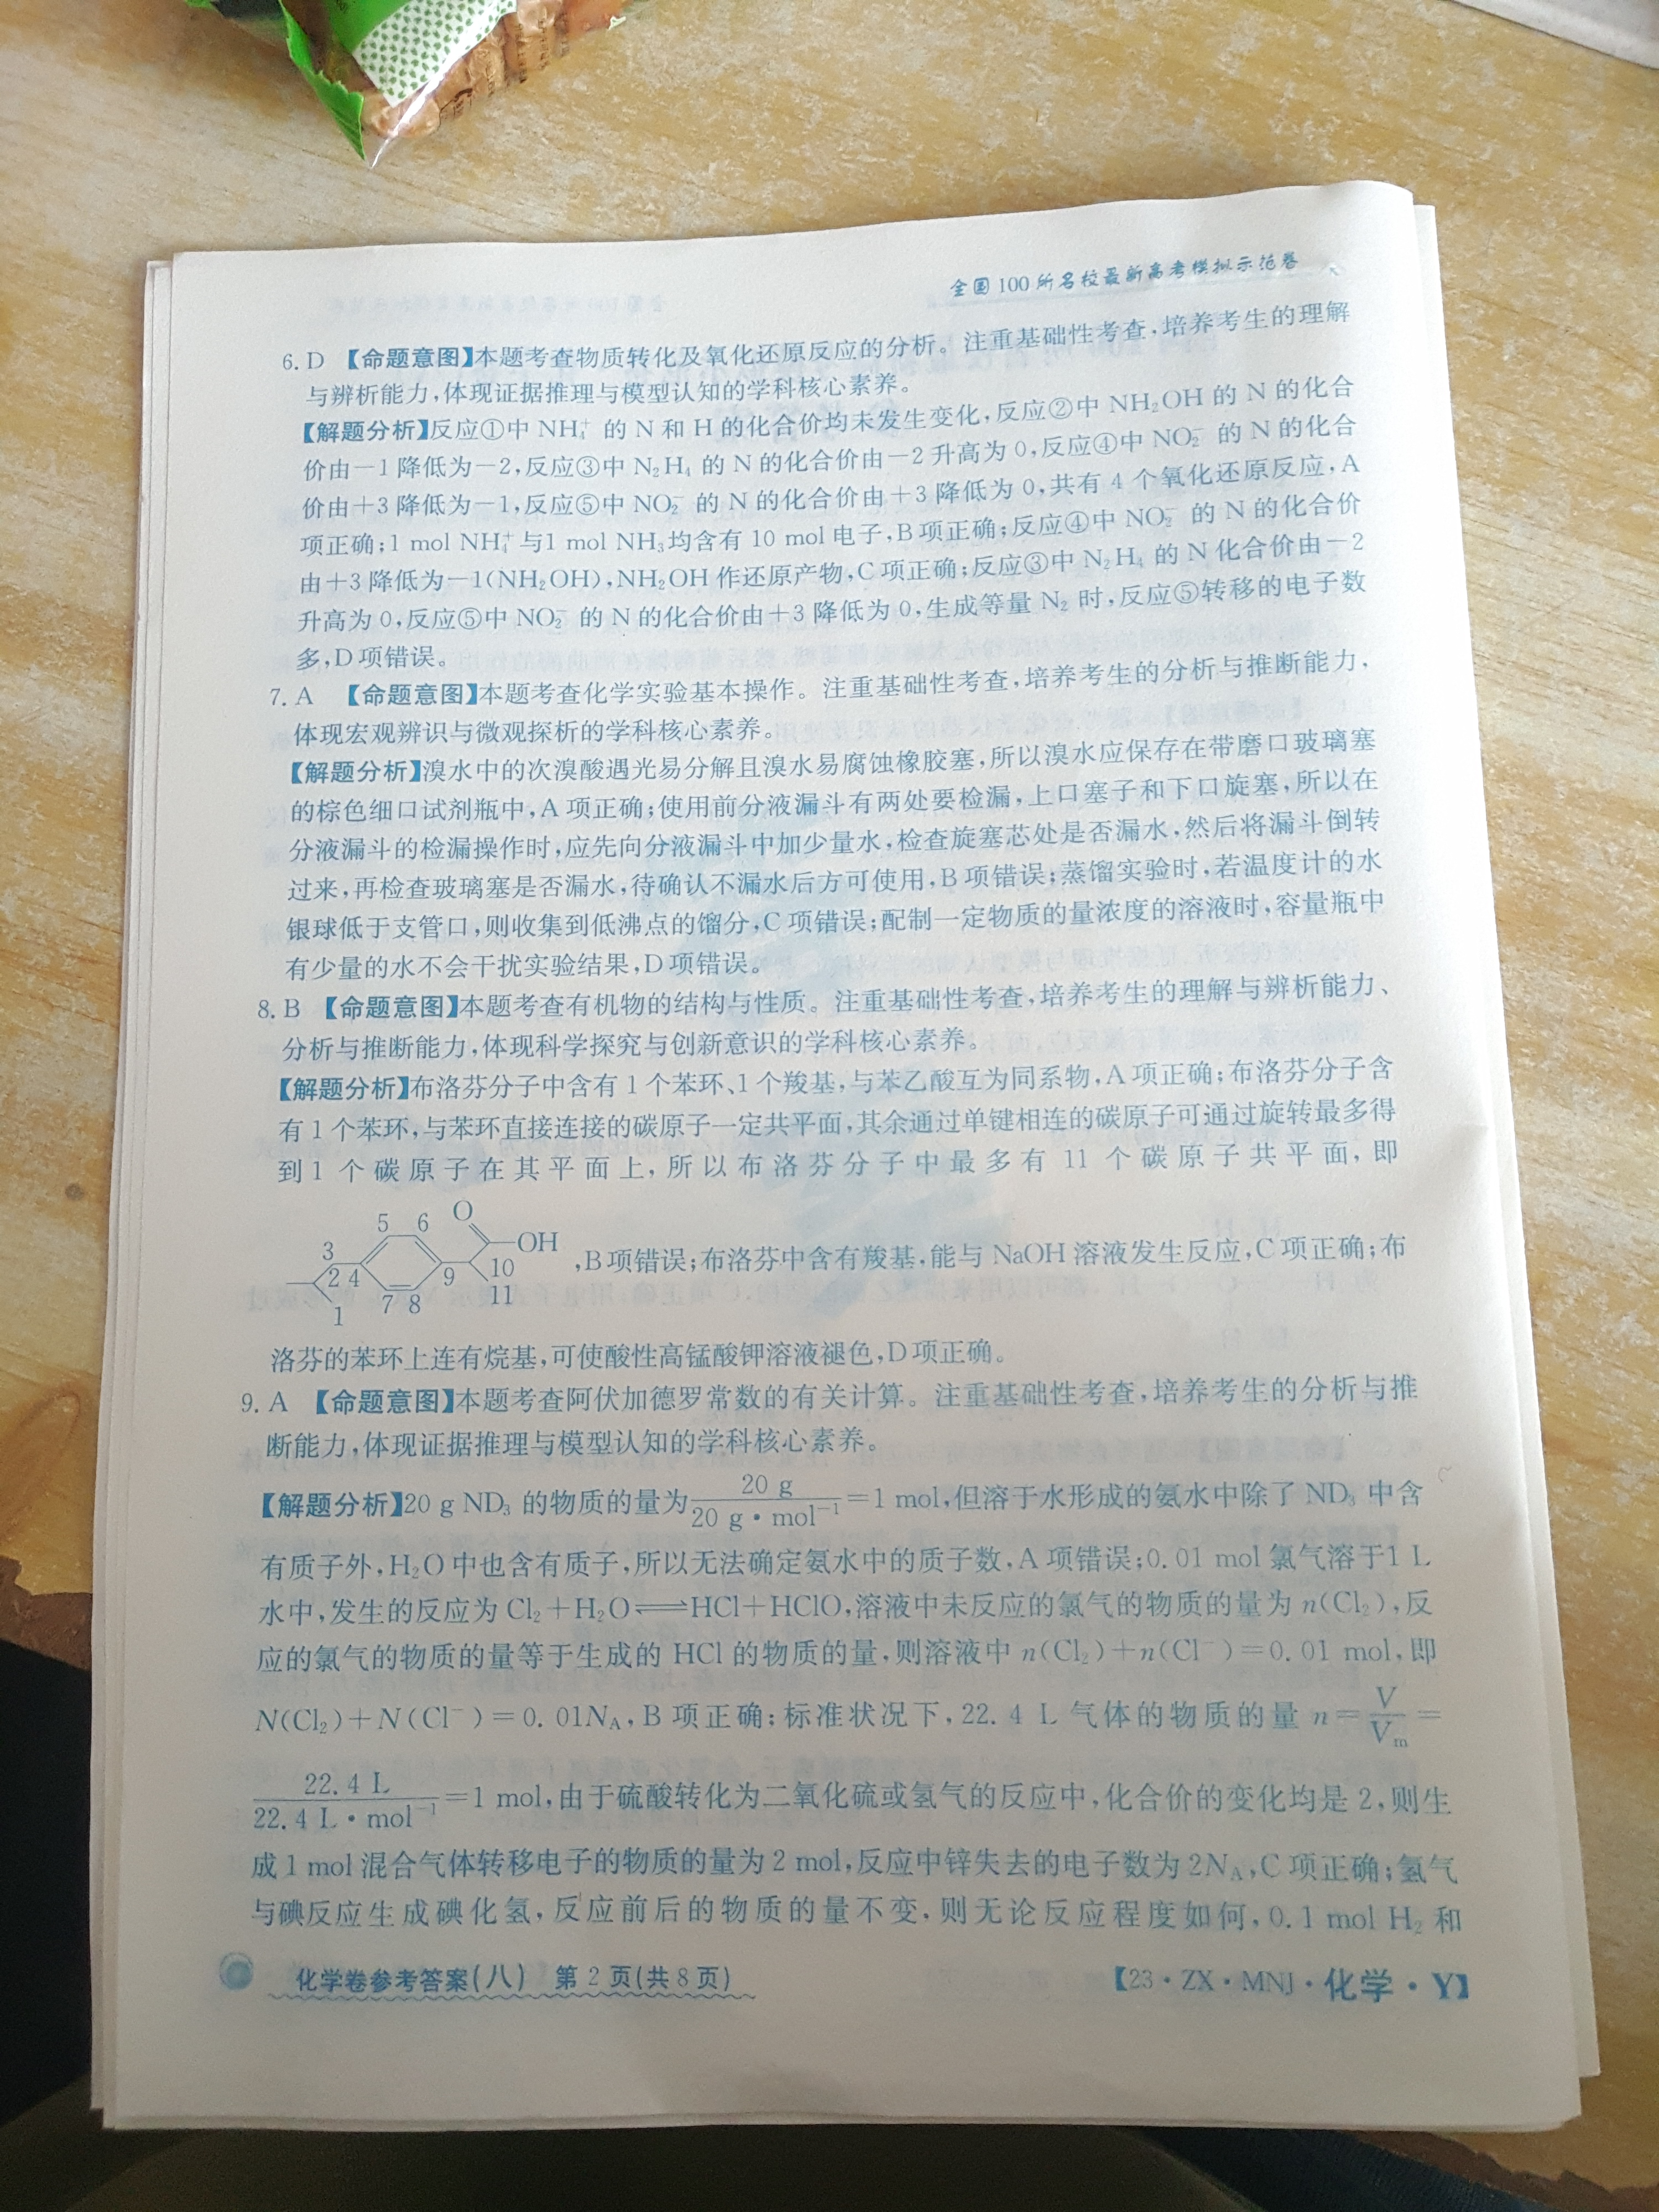 全国100所名校最新高考模拟示范卷
6. D 【命题意图】本题考查物质转化及氧化还原反应的分析。注重基础性考查,培养考生的理解
与辨析能力,体现证据推理与模型认知的学科核心素养。
【解题分析】反应①中 NH₄⁺ 的 N 和 H 的化合价均未发生变化,反应②中 NH₂OH 的 N 的化合
价由−1降低为−2,反应③中 N₂H₄ 的 N 的化合价由−2升高为0,反应④中 NO₂⁻ 的 N 的化合
价由+3降低为−1,反应⑤中 NO₂⁻ 的 N 的化合价由+3降低为0,共有4个氧化还原反应,A
项正确;1 mol NH₄⁺与1 mol NH₃均含有10 mol电子,B项正确;反应④中 NO₂⁻ 的 N 的化合价
由+3降低为−1(NH₂OH),NH₂OH作还原产物,C项正确;反应③中 N₂H₄ 的 N 化合价由−2
升高为0,反应⑤中 NO₂⁻ 的 N 的化合价由+3降低为0,生成等量 N₂ 时,反应⑤转移的电子数
多,D项错误。
7. A 【命题意图】本题考查化学实验基本操作。注重基础性考查,培养考生的分析与推断能力,
体现宏观辨识与微观探析的学科核心素养。
【解题分析】溴水中的次溴酸遇光易分解且溴水易腐蚀橡胶塞,所以溴水应保存在带磨口玻璃塞
的棕色细口试剂瓶中,A项正确;使用前分液漏斗有两处要检漏,上口塞子和下口旋塞,所以在
分液漏斗的检漏操作时,应先向分液漏斗中加少量水,检查旋塞芯处是否漏水,然后将漏斗倒转
过来,再检查玻璃塞是否漏水,待确认不漏水后方可使用,B项错误;蒸馏实验时,若温度计的水
银球低于支管口,则收集到低沸点的馏分,C项错误;配制一定物质的量浓度的溶液时,容量瓶中
有少量的水不会干扰实验结果,D项错误。
8. B 【命题意图】本题考查有机物的结构与性质。注重基础性考查,培养考生的理解与辨析能力、
分析与推断能力,体现科学探究与创新意识的学科核心素养。
【解题分析】布洛芬分子中含有1个苯环、1个羧基,与苯乙酸互为同系物,A项正确;布洛芬分子含
有1个苯环,与苯环直接连接的碳原子一定共平面,其余通过单键相连的碳原子可通过旋转最多得
到1个碳原子在其平面上,所以布洛芬分子中最多有11个碳原子共平面,即
5 6 O
3 OH
2 4 9 10
7 8 11
1
,B项错误;布洛芬中含有羧基,能与 NaOH 溶液发生反应,C项正确;布
洛芬的苯环上连有烷基,可使酸性高锰酸钾溶液褪色,D项正确。
9. A 【命题意图】本题考查阿伏加德罗常数的有关计算。注重基础性考查,培养考生的分析与推
断能力,体现证据推理与模型认知的学科核心素养。
【解题分析】20 g ND₃ 的物质的量为 20 g / 20 g·mol⁻¹ =1 mol,但溶于水形成的氨水中除了 ND₃ 中含
有质子外,H₂O中也含有质子,所以无法确定氨水中的质子数,A项错误;0.01 mol氯气溶于1 L
水中,发生的反应为 Cl₂+H₂O⇌HCl+HClO,溶液中未反应的氯气的物质的量为 n(Cl₂),反
应的氯气的物质的量等于生成的 HCl 的物质的量,则溶液中 n(Cl₂)+n(Cl⁻)=0.01 mol,即
N(Cl₂)+N(Cl⁻)=0.01N_A,B项正确;标准状况下,22.4 L 气体的物质的量 n= V / V_m =
22.4 L / 22.4 L·mol⁻¹ =1 mol,由于硫酸转化为二氧化硫或氢气的反应中,化合价的变化均是2,则生
成1 mol混合气体转移电子的物质的量为2 mol,反应中锌失去的电子数为2N_A,C项正确;氢气
与碘反应生成碘化氢,反应前后的物质的量不变,则无论反应程度如何,0.1 mol H₂ 和
化学卷参考答案(八) 第2页(共8页)
【23·ZX·MNJ·化学·Y】